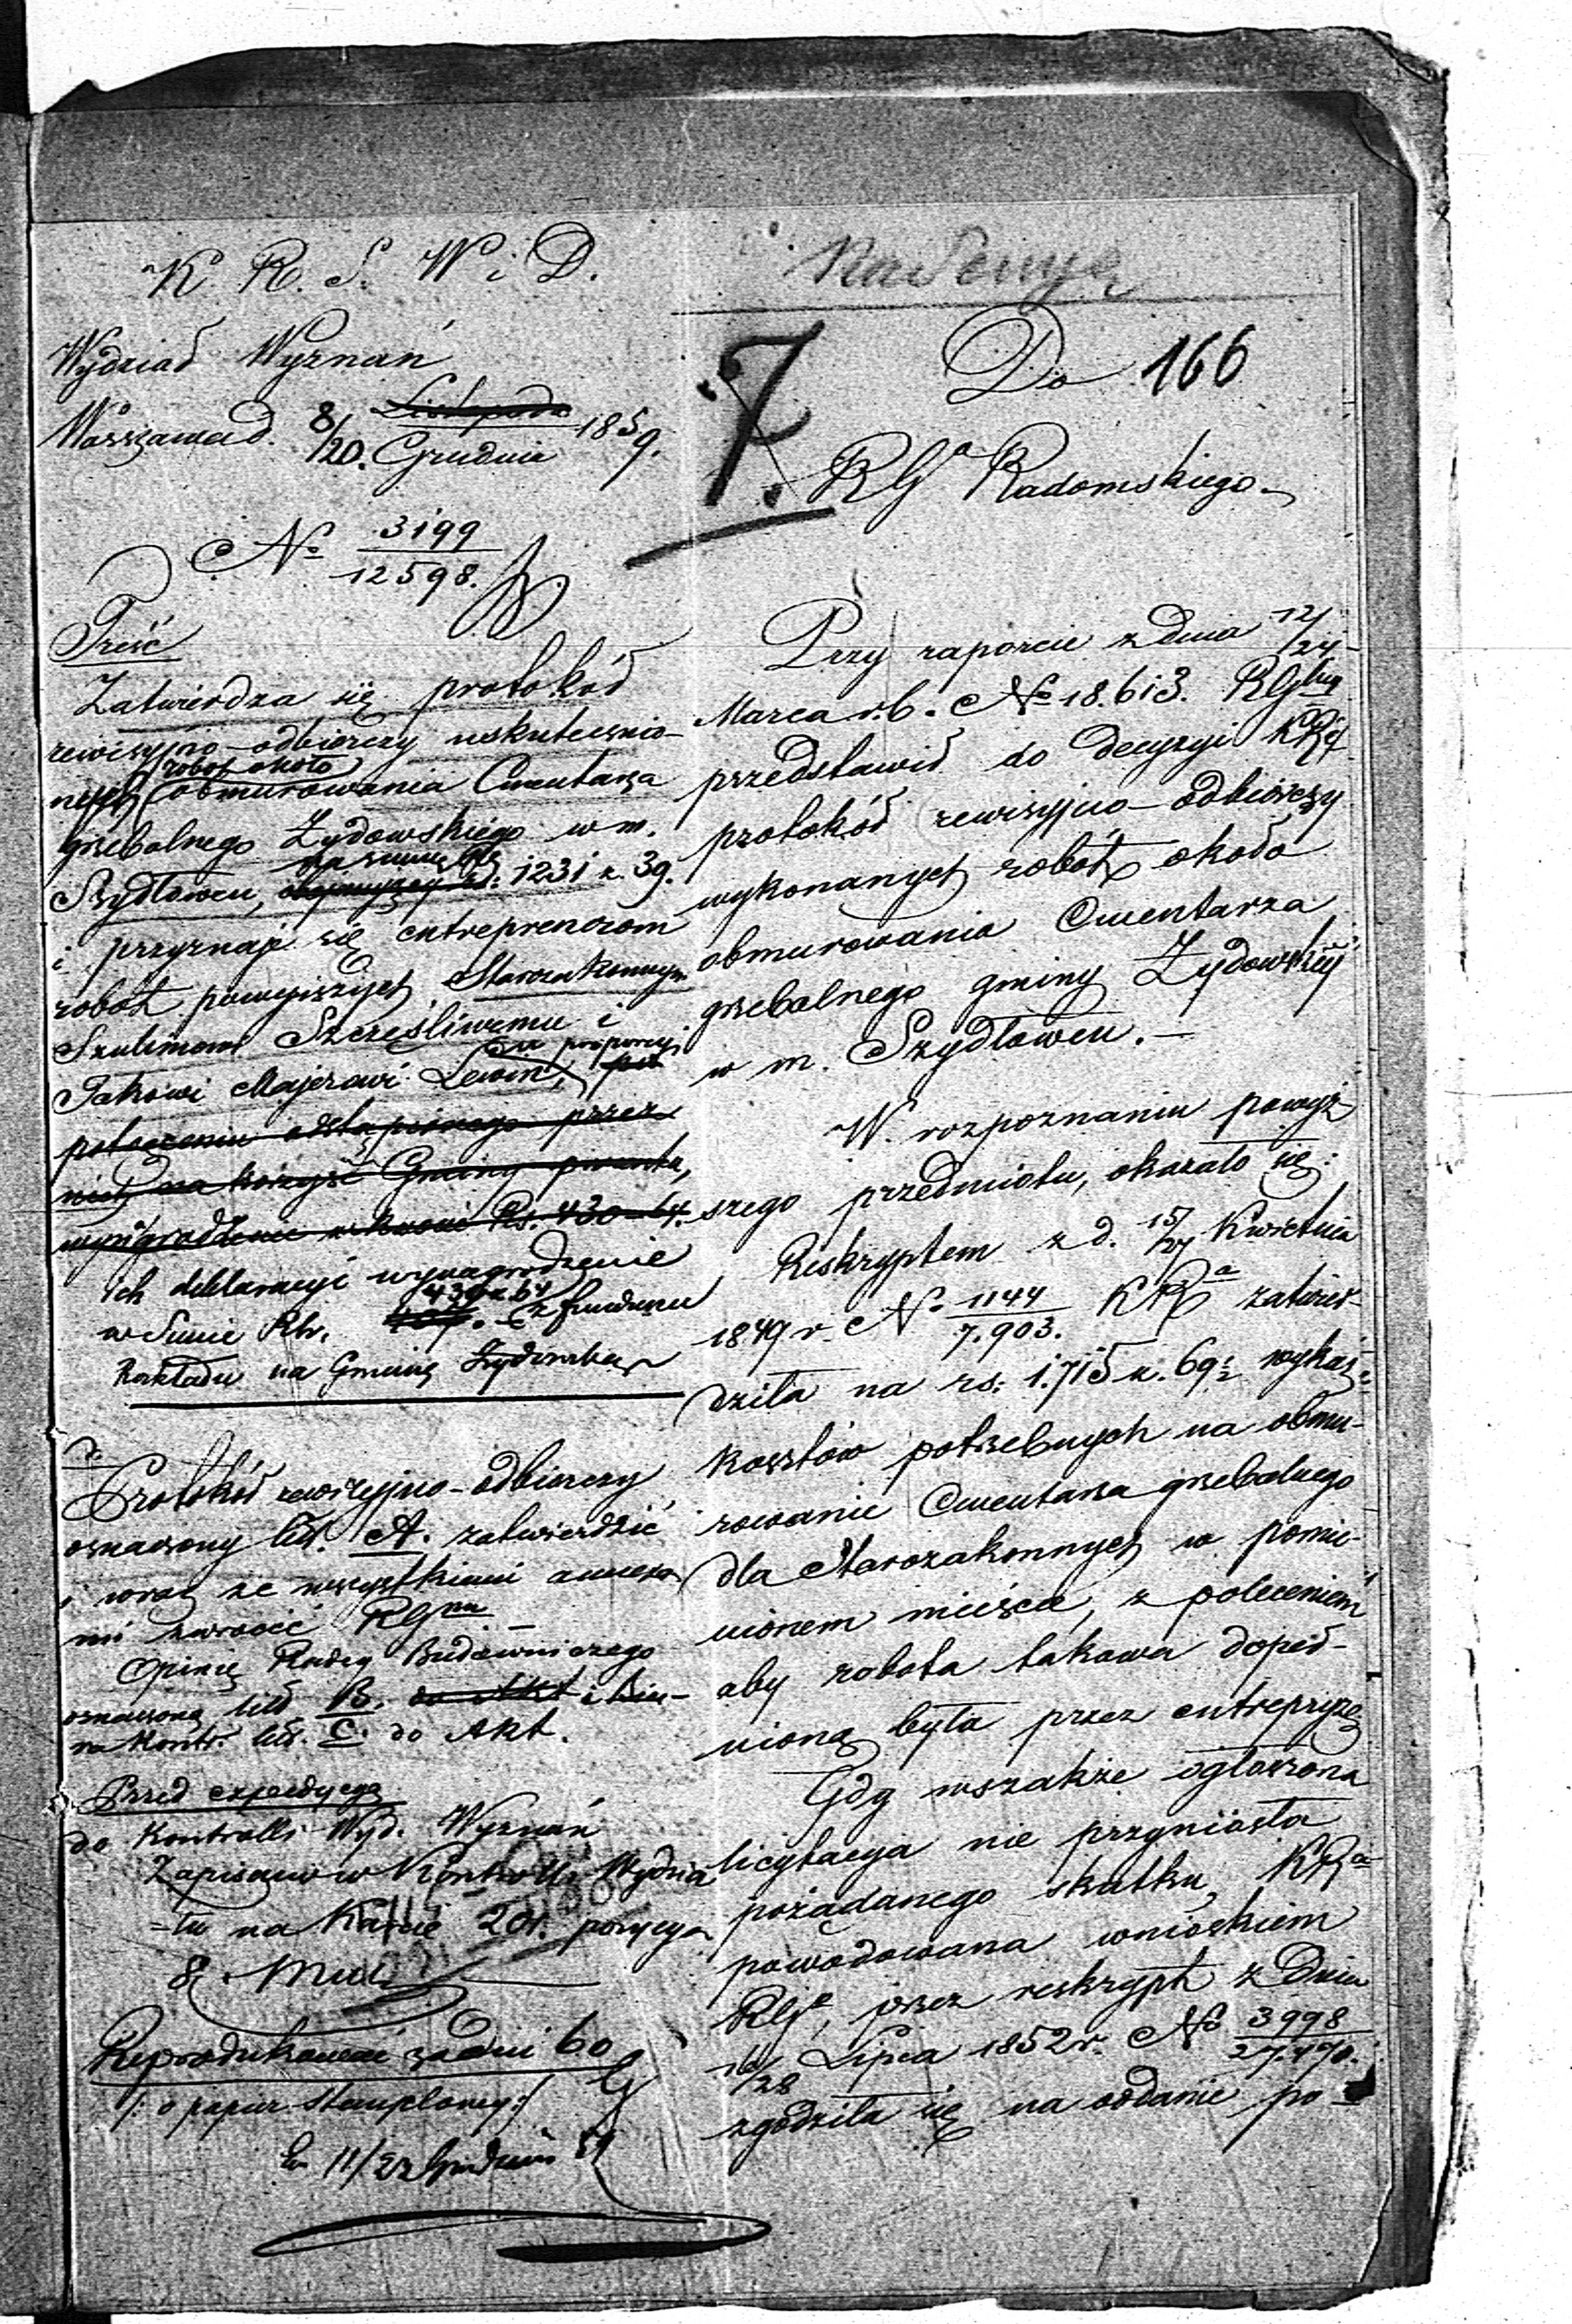 K. R. S. W i D.
Wydział Wyznań
Warszawa d. 8/20. Listopada Grudnia 1859.
No 3199/12598.
Treść
Zatwierdza się protokół
rewizyjno-odbiorczy uskutecznio-
nych robot około obmurowania Cmentarza
grzebalnego Żydowskiego w m.
Szydłowcu, na summę Rs. 1231 k. 39.
i przyznaje się entreprenerom
robot powyższych Starozakonnym
Szulimowi Szczęśliwemu i
Jakowi Majerowi Lewin, w proporcyi
potoczeniu odstąpionego przez
nich na korzyść Gminy
Rs. 430-64.
ich deklaracyi wynagrodzenie
w Sumie Rsr. 430 k. 64 z funduszu
Rozkładu na Gminę Żydowską
Protokół rewizyjno-odbiorczy
oznaczony lit. A. zatwierdzić
i wraz ze wszystkiemi annexa-
mi zwrócić RGmu
Opinię Radcy Budowniczego
oznaczoną lit B. do Akt i
na Kontr. lit. C. do Akt.
Przed expedycyą
do Kontrolli Wyd. Wyznań
Zapisano w Kontrolli Wydzia
-łu na Karcie 201. pozycya
8.
Reprodukować za dni 60
/: o papier stemplowy :/
11/23 Grudnia 59
Do 166
7.
RGo Radomskiego
Przy raporcie z dnia 12/24
Marca r. b. No 18.613. RGlny
przedstawił do decyzyi KRej
protokół rewizyjno-odbiorczy
wykonanych robót około
obmurowania Cmentarza
grzebalnego gminy Żydowskiej
w m. Szydłowcu.-
W rozpoznaniu powyż
szego przedmiotu, okazało się:
Reskryptem z d. 15/27 Kwietnia
1849 r. No 1144/7.903. KRa zatwier-
dziła na rs. 1.715 k. 69½ wykaz
kosztów potrzebnych na obmu-
rowanie Cmentarza grzebalnego
dla Starozakonnych w pomie-
nionem mieście, z poleceniem
aby robota takowa dopeł-
nioną była przez entrepryzę
Gdy wszakże ogłoszona
licytacya nie przyniosła
pożądanego skutku, KRa
powodowana wnioskiem
RGo, przez reskrypt z Dnia
16/28 Lipca 1852 r. No 3998/27.470.
zgodziła się na oddanie po-